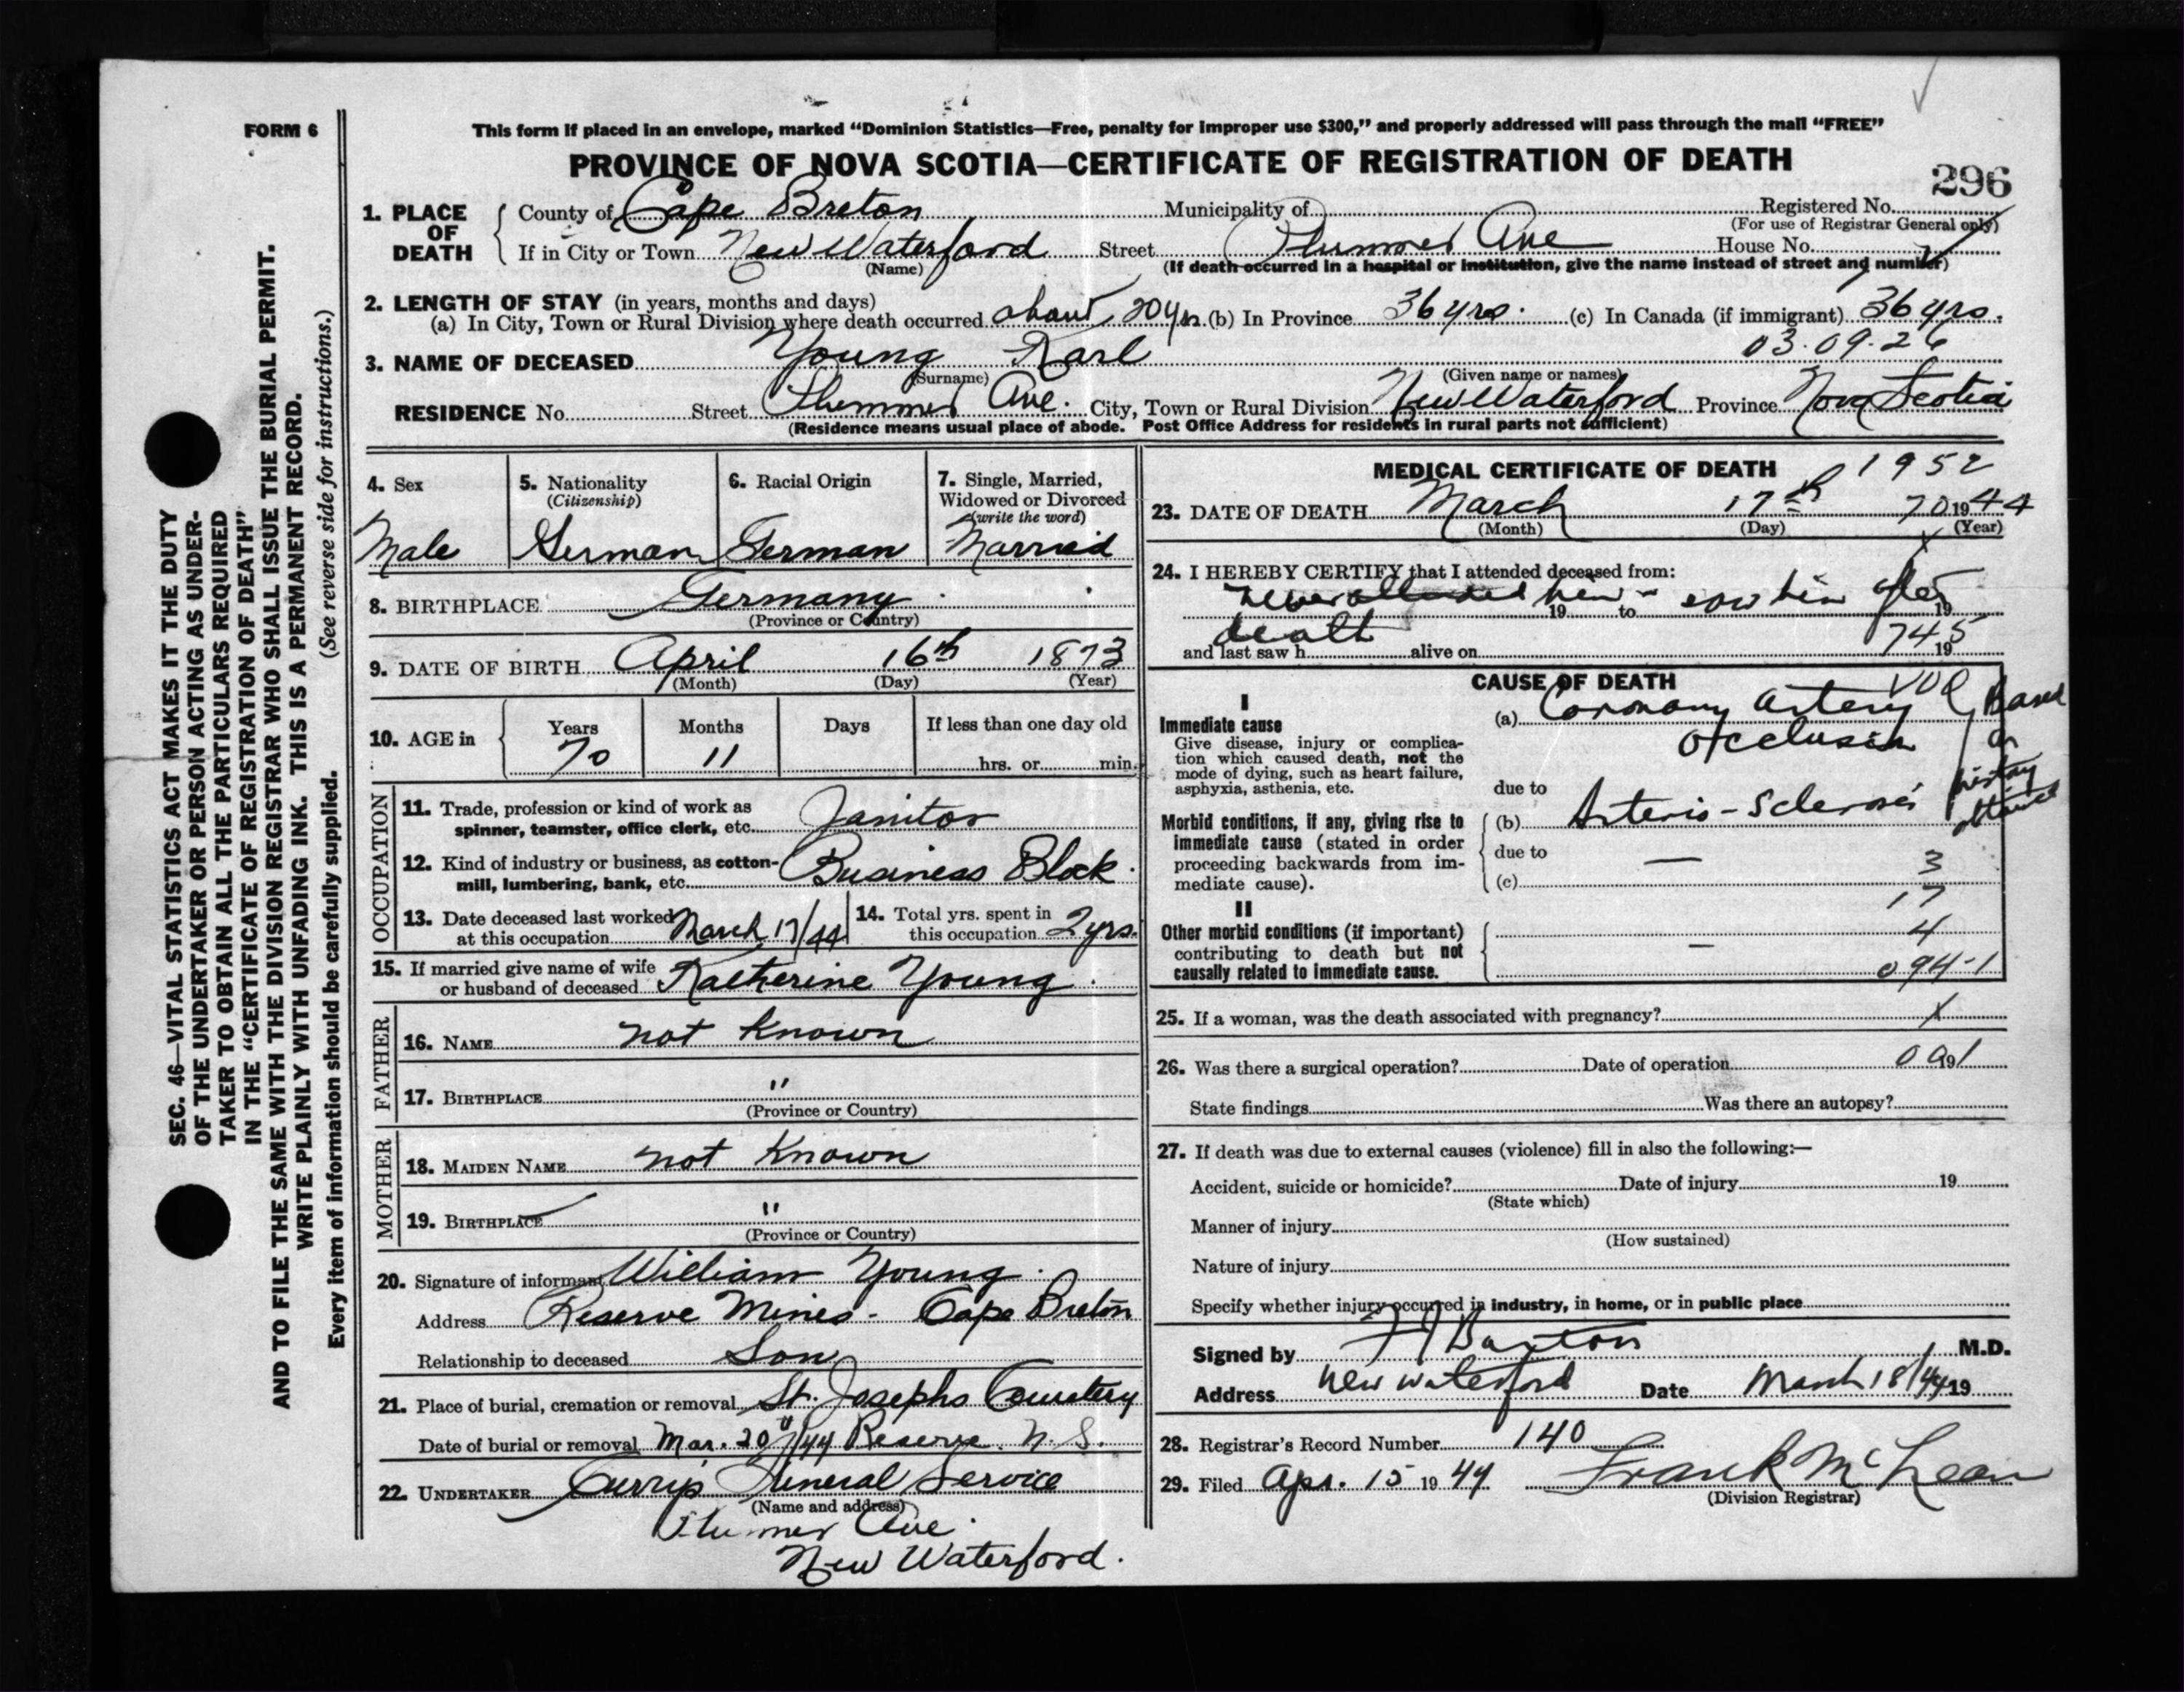 FORM 6
This form if placed in an envelope, marked “Dominion Statistics—Free, penalty for improper use $300,” and properly addressed will pass through the mail “FREE”
PROVINCE OF NOVA SCOTIA—CERTIFICATE OF REGISTRATION OF DEATH
296
1. PLACE OF DEATH
County of Cape Breton Municipality of Registered No.
(For use of Registrar General only)
If in City or Town New Waterford Street Plummer Ave House No.
(Name) (If death occurred in a hospital or institution, give the name instead of street and number)
2. LENGTH OF STAY (in years, months and days)
(a) In City, Town or Rural Division where death occurred about 20 yrs. (b) In Province 36 yrs. (c) In Canada (if immigrant) 36 yrs.
03.09.26
3. NAME OF DECEASED Young Karl
(Surname) (Given name or names)
RESIDENCE No. Street Plummer Ave. City, Town or Rural Division New Waterford Province Nova Scotia
(Residence means usual place of abode. Post Office Address for residents in rural parts not sufficient)
4. Sex
Male
5. Nationality
(Citizenship)
German
6. Racial Origin
German
7. Single, Married,
Widowed or Divorced
(write the word)
Married
8. BIRTHPLACE Germany
(Province or Country)
9. DATE OF BIRTH April 16th 1873
(Month) (Day) (Year)
10. AGE in
Years Months Days If less than one day old
70 11 hrs. or min.
OCCUPATION
11. Trade, profession or kind of work as
spinner, teamster, office clerk, etc. Janitor
12. Kind of industry or business, as cotton-
mill, lumbering, bank, etc. Business Block.
13. Date deceased last worked
at this occupation March 17/44
14. Total yrs. spent in
this occupation 2 yrs.
15. If married give name of wife
or husband of deceased Katherine Young.
FATHER
16. NAME not known
17. BIRTHPLACE "
(Province or Country)
MOTHER
18. MAIDEN NAME not known
19. BIRTHPLACE "
(Province or Country)
20. Signature of informant William Young.
Address Reserve Mines - Cape Breton
Relationship to deceased Son
21. Place of burial, cremation or removal St. Josephs Cemetery
Date of burial or removal Mar. 20/44 Reserve. N. S.
22. UNDERTAKER Curry's Funeral Service
(Name and address)
Plummer Ave.
New Waterford.
MEDICAL CERTIFICATE OF DEATH
1952
23. DATE OF DEATH March 17th 70 1944
(Month) (Day) (Year)
24. I HEREBY CERTIFY that I attended deceased from:
never attended him - saw him after
19 to 19
death
and last saw h alive on 19
745
CAUSE OF DEATH
I
Immediate cause
Give disease, injury or complica-
tion which caused death, not the
mode of dying, such as heart failure,
asphyxia, asthenia, etc.
(a) Coronary artery
occlusion
due to
Morbid conditions, if any, giving rise to
immediate cause (stated in order
proceeding backwards from im-
mediate cause).
(b) Arterio-Sclerosis
due to —
(c)
on
history
3
17
4
094-1
II
Other morbid conditions (if important)
contributing to death but not
causally related to immediate cause.
—
25. If a woman, was the death associated with pregnancy? X
26. Was there a surgical operation? Date of operation 19
State findings Was there an autopsy?
27. If death was due to external causes (violence) fill in also the following:—
Accident, suicide or homicide? Date of injury 19
(State which)
Manner of injury
(How sustained)
Nature of injury
Specify whether injury occurred in industry, in home, or in public place
Signed by M.D.
Address New Waterford Date March 18/44 19
28. Registrar's Record Number 140
29. Filed Apr. 15 1944 Frank McLean
(Division Registrar)
SEC. 46—VITAL STATISTICS ACT MAKES IT THE DUTY
OF THE UNDERTAKER OR PERSON ACTING AS UNDER-
TAKER TO OBTAIN ALL THE PARTICULARS REQUIRED
IN THE “CERTIFICATE OF REGISTRATION OF DEATH”
AND TO FILE THE SAME WITH THE DIVISION REGISTRAR WHO SHALL ISSUE THE BURIAL PERMIT.
WRITE PLAINLY WITH UNFADING INK. THIS IS A PERMANENT RECORD.
Every item of information should be carefully supplied. (See reverse side for instructions.)